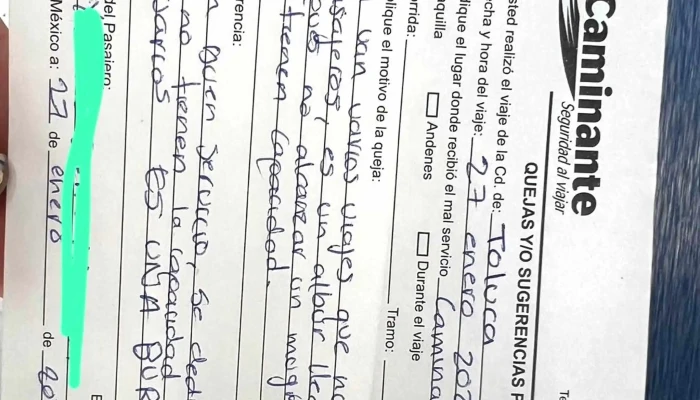 Caminante
Seguridad al viajar
Te
QUEJAS Y/O SUGERENCIAS P
sted realizó el viaje de la Cd. de: Toluca
cha y hora del viaje: 27 enero 202
dique el lugar donde recibió el mal servicio Camina
quilla □ Andenes □ Durante el viaje
rrida: Tramo:
plique el motivo de la queja:
van varios viajes que no
sajeros, es un albur lle
no alcanzar un
tienen capacidad.
rencia:
n buen servicio, se dedi
no tienen la capacidad
varios ES UNA BUR
del Pasajero:
E
México a: 27 de enero de 20